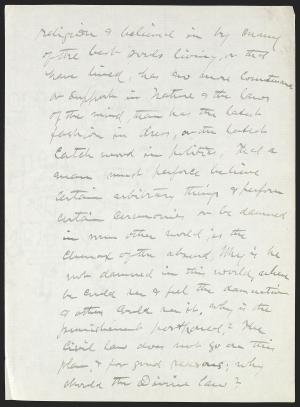 religion & believed in by many
of the best souls living, or that
have lived, has no more countenance
or support in Nature & the laws
of the mind, than has the latest
fashion in dress, or the latest
catch word in politics. That a
man must perforce believe
certain arbitrary things & perform
certain ceremonies or be damned
in some other world is the
climax of the absurd. Why is he
not damned in this world, where
he could see & feel the damnation
& others could see it. Why is the
punishment postponed? The
Civil law does not go on this
plan, & for good reasons; why
should the Divine law?